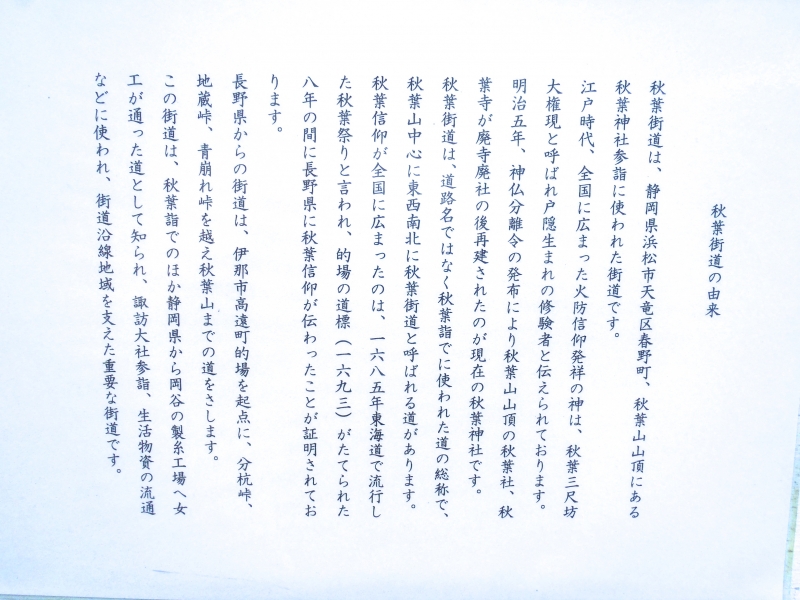 秋葉街道の由来
秋葉街道は、静岡県浜松市天竜区春野町、秋葉山山頂にある
秋葉神社参詣に使われた街道です。
江戸時代、全国に広まった火防信仰発祥の神は、秋葉三尺坊
大権現と呼ばれ戸隠生まれの修験者と伝えられております。
明治五年、神仏分離令の発布により秋葉山山頂の秋葉社、秋
葉寺が廃寺廃社の後再建されたのが現在の秋葉神社です。
秋葉街道は、道路名ではなく秋葉詣でに使われた道の総称で、
秋葉山中心に東西南北に秋葉街道と呼ばれる道があります。
秋葉信仰が全国に広まったのは、一六八五年東海道で流行し
た秋葉祭りと言われ、的場の道標（一六九三）がたてられた
八年の間に長野県に秋葉信仰が伝わったことが証明されてお
ります。
長野県からの街道は、伊那市高遠町的場を起点に、分杭峠、
地蔵峠、青崩れ峠を越え秋葉山までの道をさします。
この街道は、秋葉詣でのほか静岡県から岡谷の製糸工場へ女
工が通った道として知られ、諏訪大社参詣、生活物資の流通
などに使われ、街道沿線地域を支えた重要な街道です。